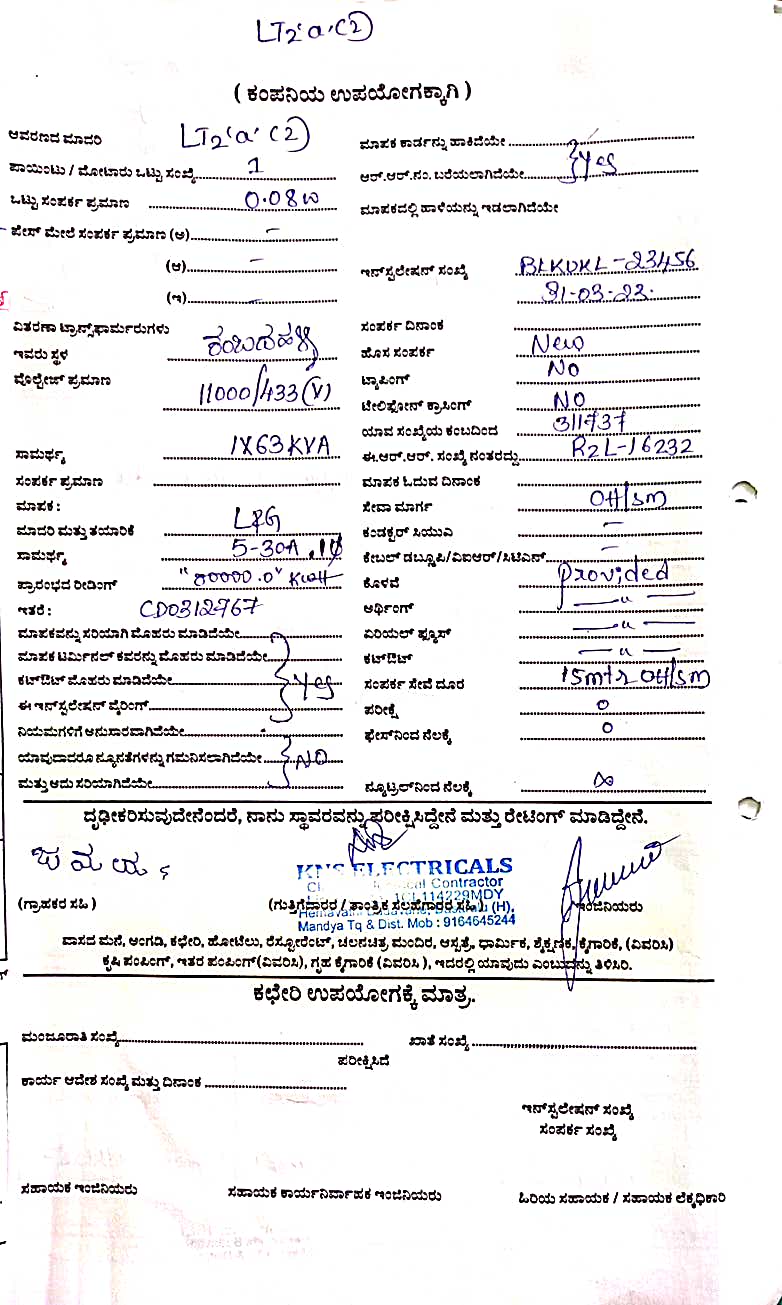 LT2'a'(2)
( ಕಂಪನಿಯ ಉಪಯೋಗಕ್ಕಾಗಿ )
ಆವರಣದ ಮಾದರಿ LT2'a'(2) ಮಾಪಕ ಕಾರ್ಡನ್ನು ಹಾಕಿದೆಯೇ
ಪಾಯಿಂಟು / ಮೋಟಾರು ಒಟ್ಟು ಸಂಖ್ಯೆ 1 ಆರ್.ಆರ್.ನಂ. ಬರೆಯಲಾಗಿದೆಯೇ Yes
ಒಟ್ಟು ಸಂಪರ್ಕ ಪ್ರಮಾಣ 0.08 ಮಾಪಕದಲ್ಲಿ ಹಾಳೆಯನ್ನು ಇಡಲಾಗಿದೆಯೇ
ಪೇಸ್ ಮೇಲೆ ಸಂಪರ್ಕ ಪ್ರಮಾಣ (ಅ) –
(ಆ) – ಇನ್‌ಸ್ಟಲೇಷನ್ ಸಂಖ್ಯೆ BLKDKL-23456
(ಇ) – 31-03-23.
ವಿತರಣಾ ಟ್ರಾನ್ಸ್‌ಫಾರ್ಮರುಗಳು ಸಂಪರ್ಕ ದಿನಾಂಕ
ಇವರು ಸ್ಥಳ ಕಂಬದಹಳ್ಳಿ ಹೊಸ ಸಂಪರ್ಕ New
ವೊಲ್ಟೇಜ್ ಪ್ರಮಾಣ 11000/433(V) ಟ್ಯಾಪಿಂಗ್ No
ಟೇಲಿಫೋನ್ ಕ್ರಾಸಿಂಗ್ NO
ಯಾವ ಸಂಖ್ಯೆಯ ಕಂಬದಿಂದ 311737
ಸಾಮರ್ಥ್ಯ 1X63KVA ಈ.ಆರ್.ಆರ್. ಸಂಖ್ಯೆ ನಂತರದ್ದು R2L-16232
ಸಂಪರ್ಕ ಪ್ರಮಾಣ ಮಾಪಕ ಓದುವ ದಿನಾಂಕ
ಮಾಪಕ : ಸೇವಾ ಮಾರ್ಗ OH/SM
ಮಾದರಿ ಮತ್ತು ತಯಾರಿಕೆ L&G ಕಂಡಕ್ಟರ್ ಸಿಯುವಿ –
ಸಾಮರ್ಥ್ಯ 5-30A,1φ ಕೇಬಲ್ ಡಬ್ಲೂಪಿ/ವಿಐಆರ್/ಸಿಟಿಎನ್ –
ಪ್ರಾರಂಭದ ರೀಡಿಂಗ್ "00000.0" KWH ಕೊಳವೆ Provided
ಇತರೆ : CD0312767 ಅರ್ಥಿಂಗ್ —"—
ಮಾಪಕವನ್ನು ಸರಿಯಾಗಿ ಮೊಹರು ಮಾಡಿದೆಯೇ ಏರಿಯಲ್ ಫ್ಯೂಸ್ —"—
ಮಾಪಕ ಟರ್ಮಿನಲ್ ಕವರನ್ನು ಮೊಹರು ಮಾಡಿದೆಯೇ ಕಟ್‌ಔಟ್ —"—
ಕಟ್‌ಔಟ್ ಮೊಹರು ಮಾಡಿದೆಯೇ Yes ಸಂಪರ್ಕ ಸೇವೆ ದೂರ 15mtr OH/SM
ಈ ಇನ್‌ಸ್ಟಲೇಷನ್ ವೈರಿಂಗ್ ಪರೀಕ್ಷೆ 0
ನಿಯಮಗಳಿಗೆ ಅನುಸಾರವಾಗಿದೆಯೇ ಫೇಸ್‌ನಿಂದ ನೆಲಕ್ಕೆ 0
ಯಾವುದಾದರೂ ನ್ಯೂನತೆಗಳನ್ನು ಗಮನಿಸಲಾಗಿದೆಯೇ NO
ಮತ್ತು ಅದು ಸರಿಯಾಗಿದೆಯೇ ನ್ಯೂಟ್ರಲ್‌ನಿಂದ ನೆಲಕ್ಕೆ ∞
ದೃಢೀಕರಿಸುವುದೇನೆಂದರೆ, ನಾನು ಸ್ಥಾವರವನ್ನು ಪರೀಕ್ಷಿಸಿದ್ದೇನೆ ಮತ್ತು ರೇಟಿಂಗ್ ಮಾಡಿದ್ದೇನೆ.
KNS ELECTRICALS
Contractor
114229MDY
(ಗ್ರಾಹಕರ ಸಹಿ ) (ಗುತ್ತಿಗೆದಾರರ / ತಾಂತ್ರಿಕ ಸಲಹೆಗಾರರ ಸಹಿ ) (H), ಇಂಜಿನಿಯರು
Mandya Tq & Dist. Mob : 9164645244
ವಾಸದ ಮನೆ, ಅಂಗಡಿ, ಕಛೇರಿ, ಹೋಟೆಲು, ರೆಸ್ಟೋರೆಂಟ್, ಚಲನಚಿತ್ರ ಮಂದಿರ, ಆಸ್ಪತ್ರೆ, ಧಾರ್ಮಿಕ, ಶೈಕ್ಷಣಿಕ, ಕೈಗಾರಿಕೆ, (ವಿವರಿಸಿ)
ಕೃಷಿ ಪಂಪಿಂಗ್, ಇತರ ಪಂಪಿಂಗ್(ವಿವರಿಸಿ), ಗೃಹ ಕೈಗಾರಿಕೆ (ವಿವರಿಸಿ ), ಇದರಲ್ಲಿ ಯಾವುದು ಎಂಬುದನ್ನು ತಿಳಿಸಿರಿ.
ಕಛೇರಿ ಉಪಯೋಗಕ್ಕೆ ಮಾತ್ರ.
ಮಂಜೂರಾತಿ ಸಂಖ್ಯೆ ಖಾತೆ ಸಂಖ್ಯೆ
ಪರೀಕ್ಷಿಸಿದೆ
ಕಾರ್ಯ ಆದೇಶ ಸಂಖ್ಯೆ ಮತ್ತು ದಿನಾಂಕ
ಇನ್‌ಸ್ಟಲೇಷನ್ ಸಂಖ್ಯೆ
ಸಂಪರ್ಕ ಸಂಖ್ಯೆ
ಸಹಾಯಕ ಇಂಜಿನಿಯರು ಸಹಾಯಕ ಕಾರ್ಯನಿರ್ವಾಹಕ ಇಂಜಿನಿಯರು ಹಿರಿಯ ಸಹಾಯಕ / ಸಹಾಯಕ ಲೆಕ್ಕಧಿಕಾರಿ